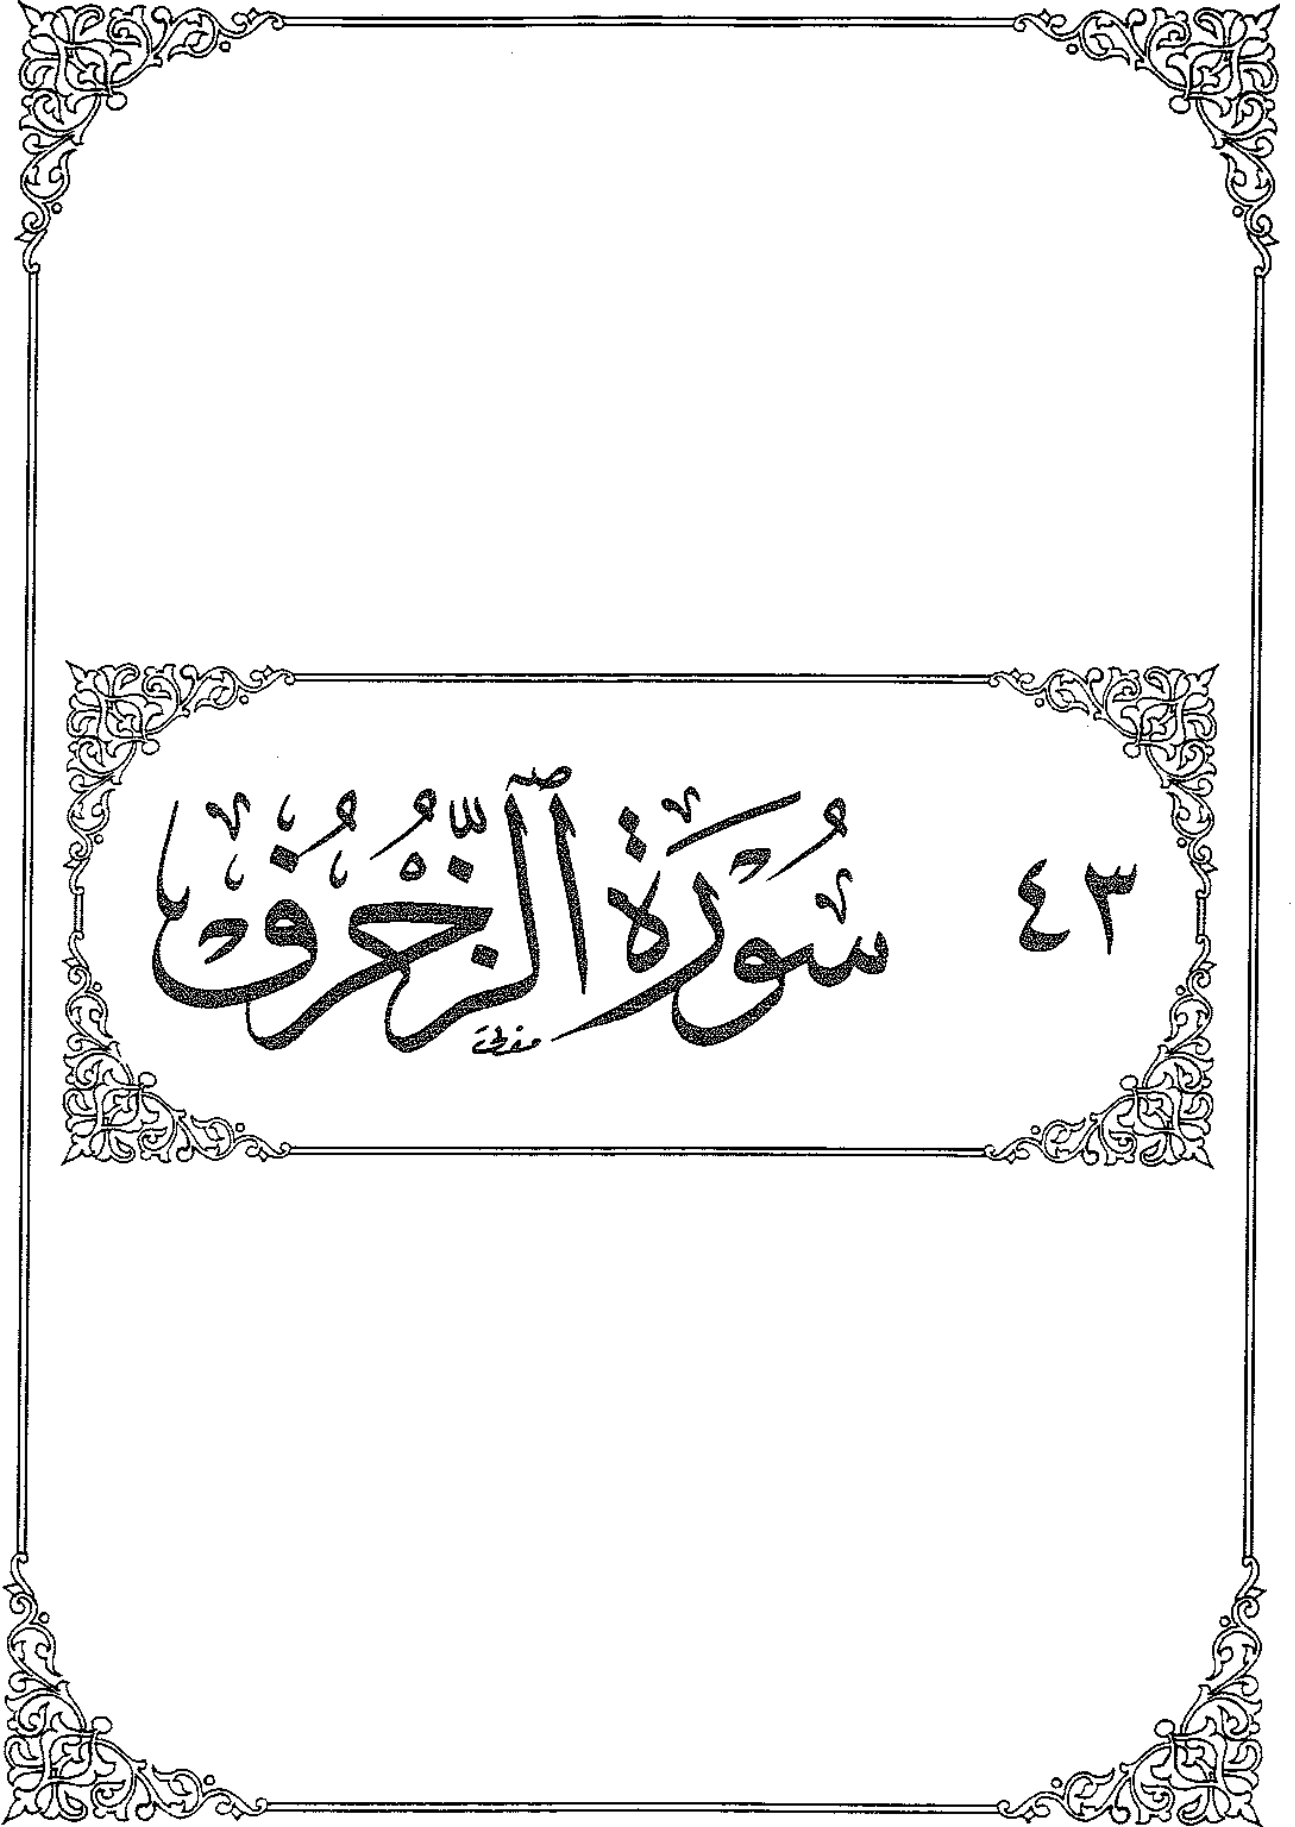 ٤٣ سُورَةُ ٱلزُّخْرُفِ